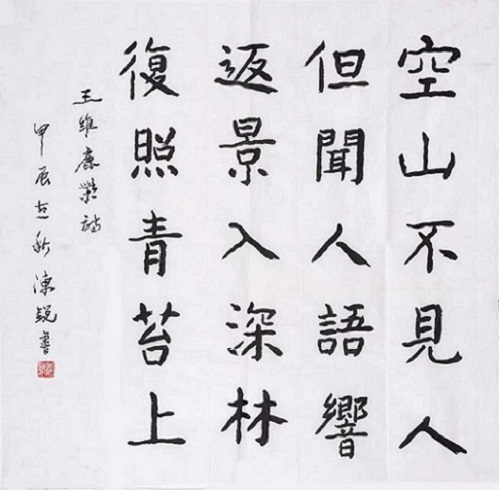 空山不見人
但聞人語響
返景入深林
復照青苔上
王維鹿柴詩
甲辰立秋陳銳書